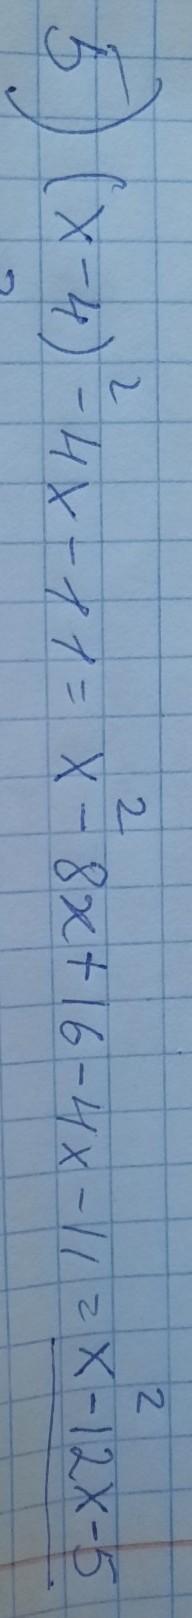 5) (x-4)² - 4x - 11 = x² - 8x + 16 - 4x - 11 = x² - 12x - 5